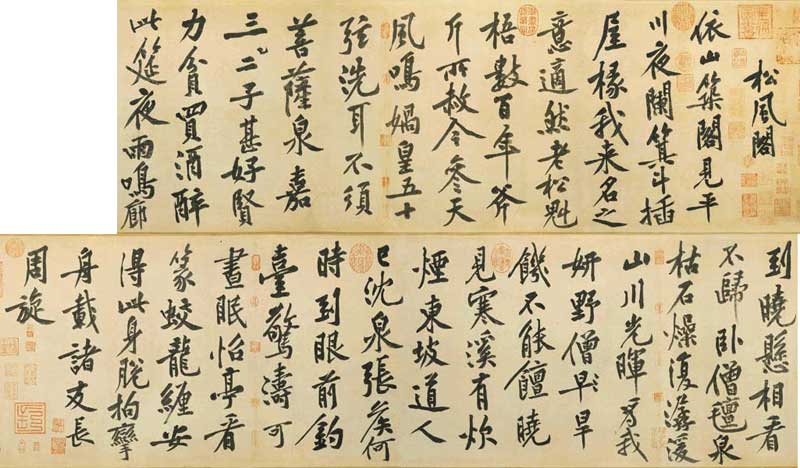 松風閣
依山築閣見平
川夜闌箕斗插
屋椽我来名之
意適然老松魁
梧數百年斧
斤所赦今參天
風鳴媧皇五十
弦洗耳不須
菩薩泉嘉
三二子甚好賢
力貧買酒醉
此筵夜雨鳴廊
到曉懸相看
不歸卧僧氈泉
枯石燥復潺湲
山川光暉為我
妍野僧早旱
饑不能饘曉
見寒溪有炊
煙東坡道人
已沈泉張侯何
時到眼前釣
臺驚濤可
晝眠怡亭看
篆蛟龍纏安
得此身脱拘攣
舟載諸友長
周旋